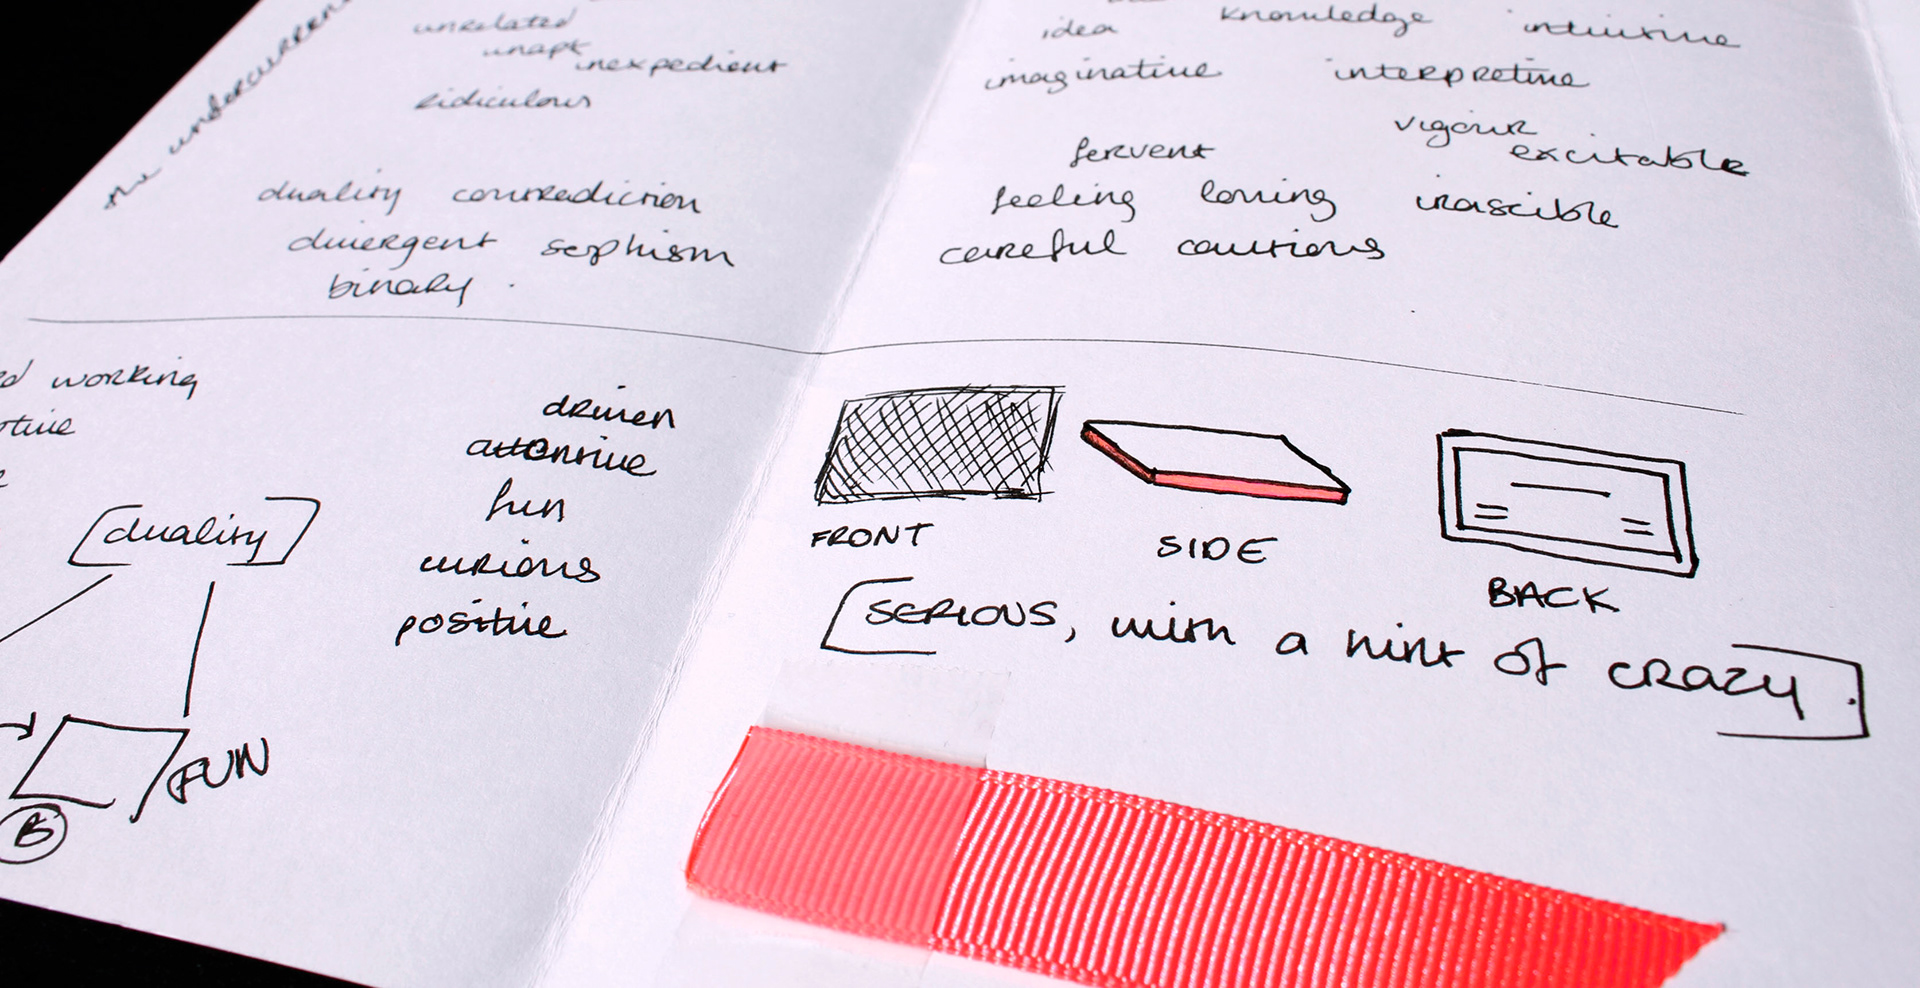 the undercurrent
unrelated
unapt
inexpedient
ridiculous
duality contradiction
divergent sophism
binary.
idea knowledge intuitive
imaginative interpretive
vigour
fervent excitable
feeling loving irascible
careful cautious
working
driven
attentive
fun
curious
positive
[duality]
FUN
B
FRONT
SIDE
BACK
[SERIOUS, with a hint of CRAZY.]